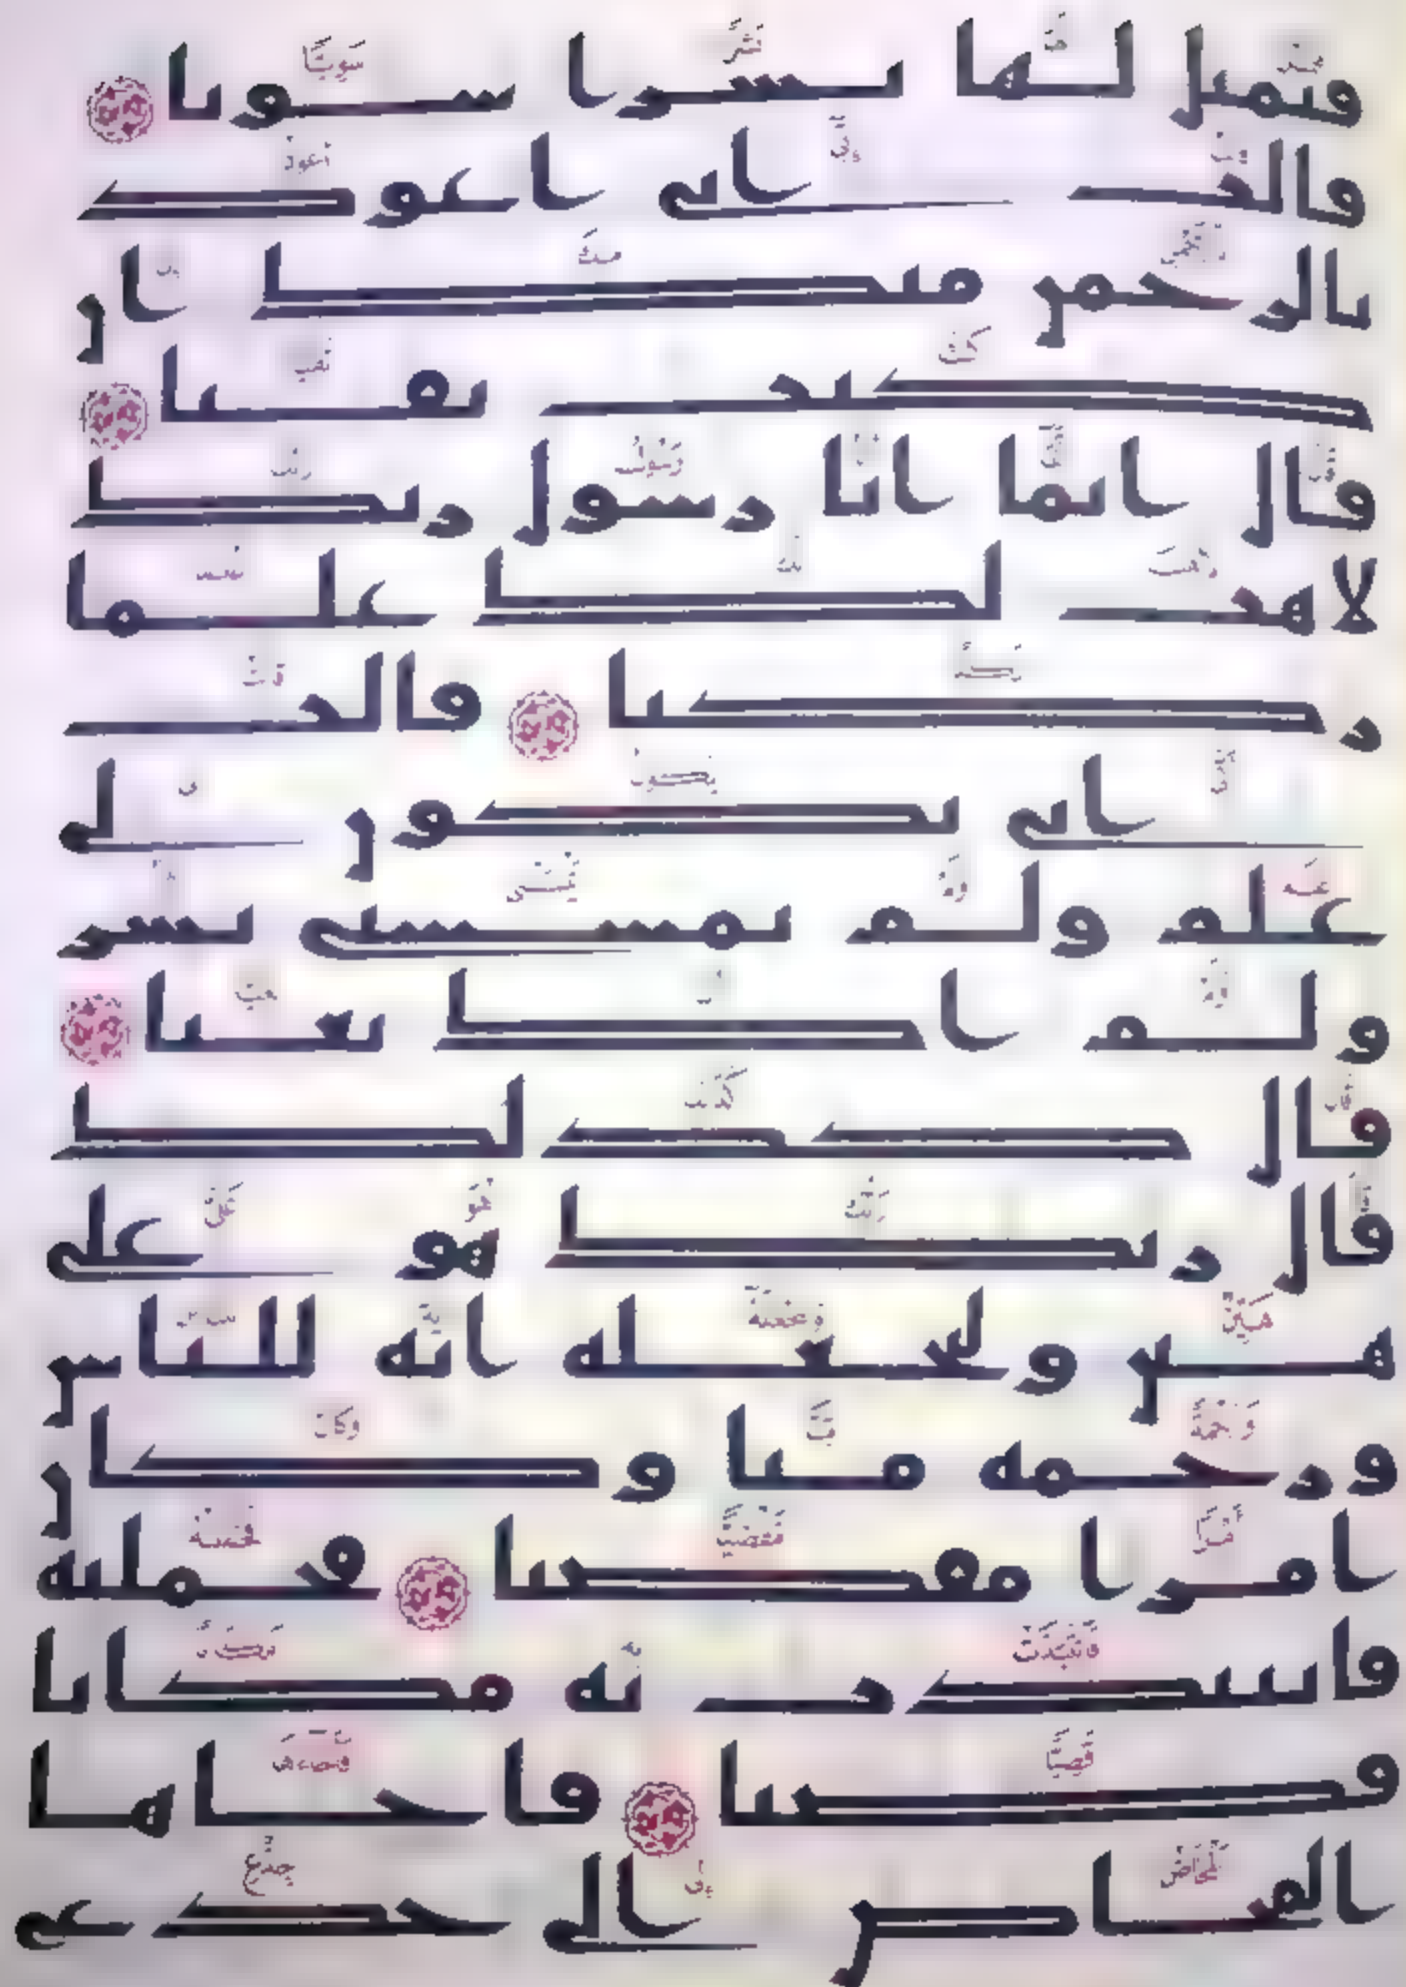 فتمثل لها بشرا سويا
قالت اني اعوذ
بالرحمن منك ان
كنت تقيا
قال انما انا رسول ربك
لاهب لك غلما
زكيا قالت
انى يكون لي
غلم ولم يمسسني بشر
ولم اك بغيا
قال كذلك
قال ربك هو علي
هين ولنجعله اية للناس
ورحمة منا وكان
امرا مقضيا فحملته
فانتبذت به مكانا
قصيا فاجاها
المخاض الى جذع